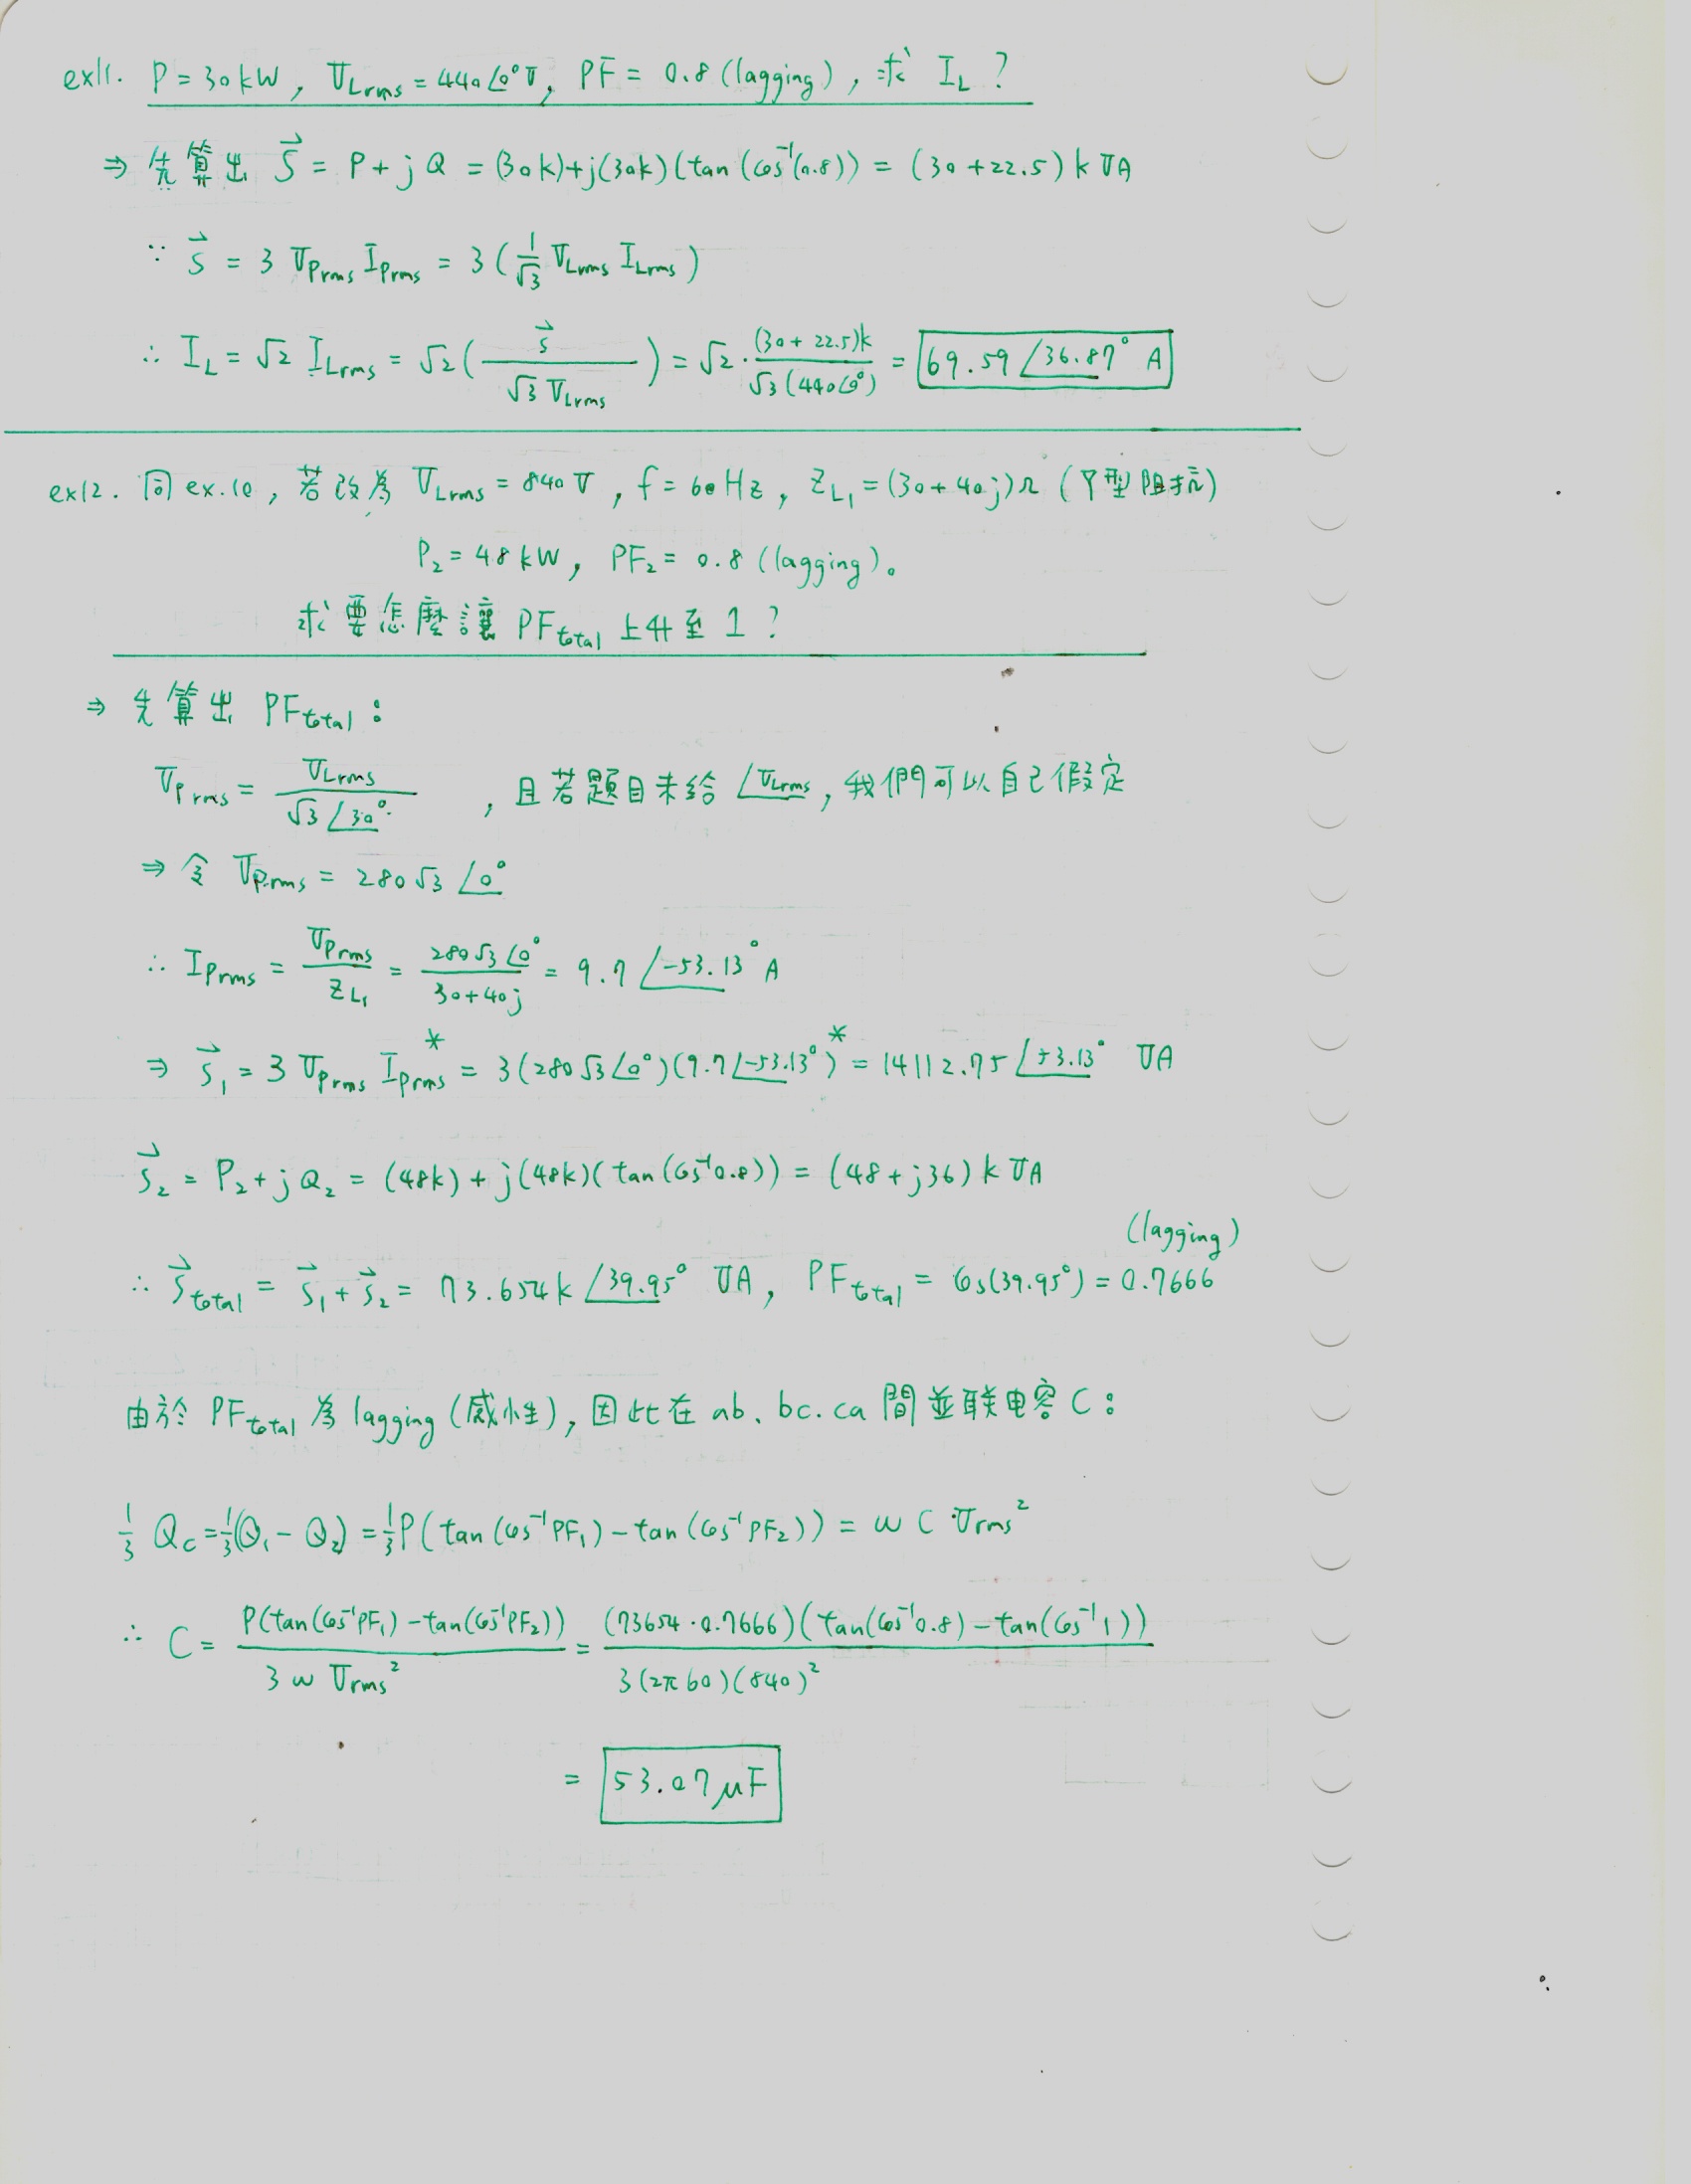 ex11. P = 30kW, VLrms = 440∠0°V, PF = 0.8 (lagging), 求 IL ?
⇒ 先算出 S⃗ = P + jQ = (30k)+j(30k)(tan(cos⁻¹(0.8)) = (30+22.5)kVA
∵ S⃗ = 3 VPrms IPrms = 3(1/√3 VLrms ILrms)
∴ IL = √2 ILrms = √2(S⃗/(√3 VLrms)) = √2·(30+22.5)k/(√3(440∠0°)) = 69.59∠36.87° A
ex12. 同ex.10, 若改為 VLrms = 840V, f = 60Hz, ZL1 = (30+40j)Ω (Y型阻抗)
P2 = 48kW, PF2 = 0.8 (lagging)。
求要怎麼讓 PFtotal 上升至 1 ?
⇒ 先算出 PFtotal :
VPrms = VLrms/(√3∠30°), 且若題目未給∠VLrms, 我們可以自己假定
⇒ 令 VPrms = 280√3∠0°
∴ IPrms = VPrms/ZL1 = 280√3∠0°/(30+40j) = 9.7∠-53.13° A
⇒ S⃗1 = 3 VPrms IPrms* = 3(280√3∠0°)(9.7∠-53.13°)* = 14112.75∠53.13° VA
S⃗2 = P2 + jQ2 = (48k) + j(48k)(tan(cos⁻¹0.8)) = (48+j36)kVA
∴ S⃗total = S⃗1 + S⃗2 = 73.654k∠39.95° VA, PFtotal = cos(39.95°) = 0.7666 (lagging)
由於 PFtotal 為 lagging (感性), 因此在 ab、bc、ca 間並联电容 C :
1/3 Qc = 1/3(Q1 - Q2) = 1/3 P(tan(cos⁻¹PF1) - tan(cos⁻¹PF2)) = ωC Vrms²
∴ C = P(tan(cos⁻¹PF1) - tan(cos⁻¹PF2))/(3ωVrms²) = (73654·0.7666)(tan(cos⁻¹0.8) - tan(cos⁻¹1))/(3(2π60)(840)²)
= 53.07μF